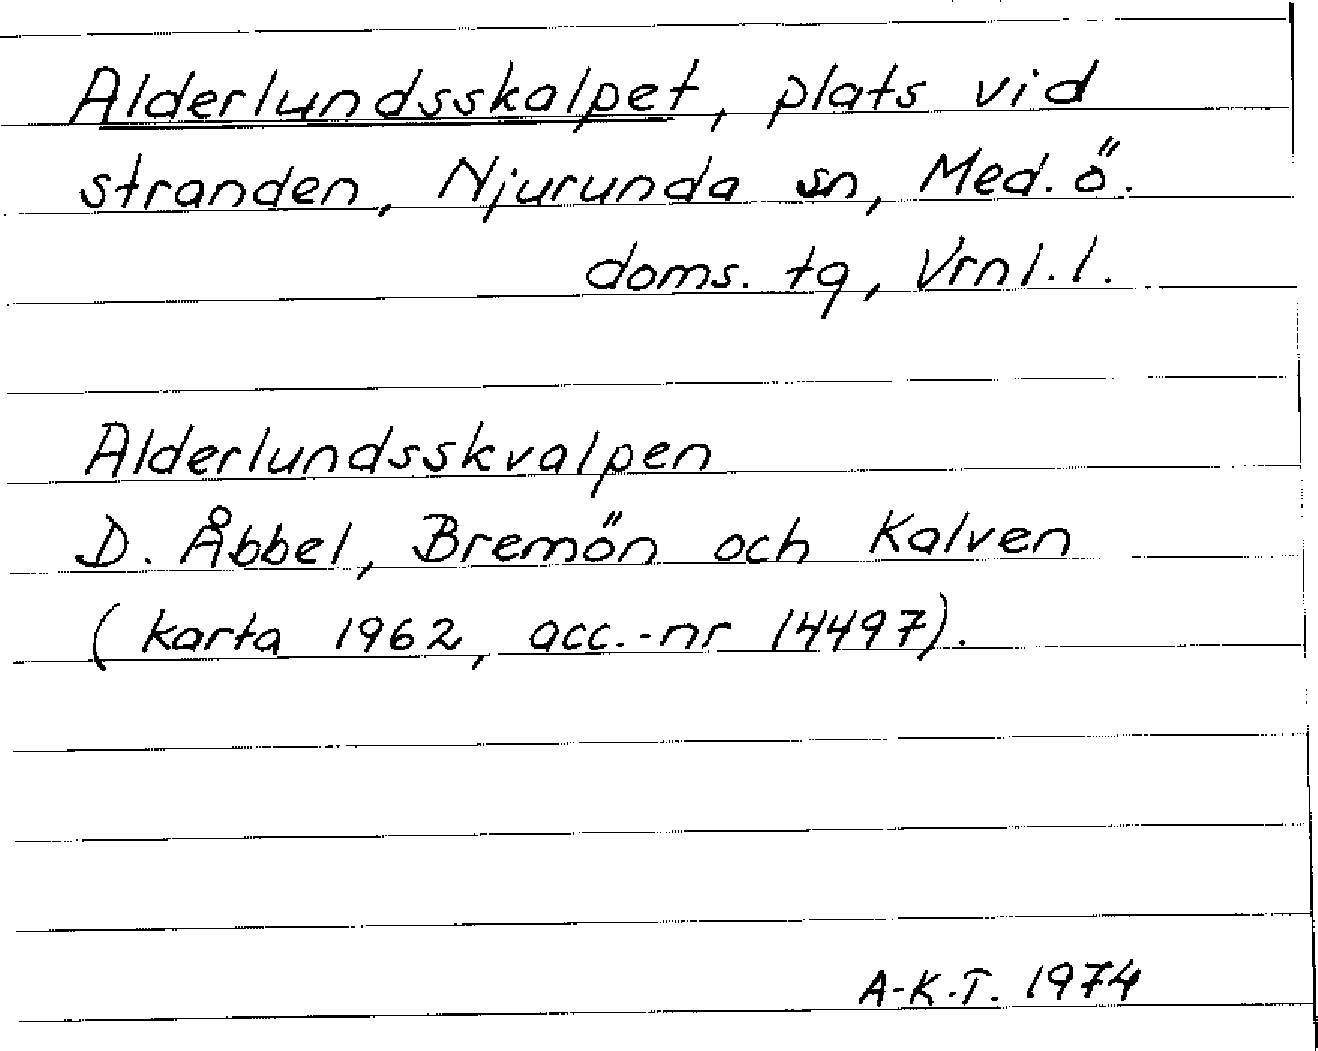 Alderlundsskalpet, plats vid
stranden, Njurunda sn, Med. ö.
doms. tg, Vrnl. l.
Alderlundsskvalpen
D. Åbbel, Bremön och Kalven
(karta 1962, acc.-nr 14497).
A-K.T. 1974